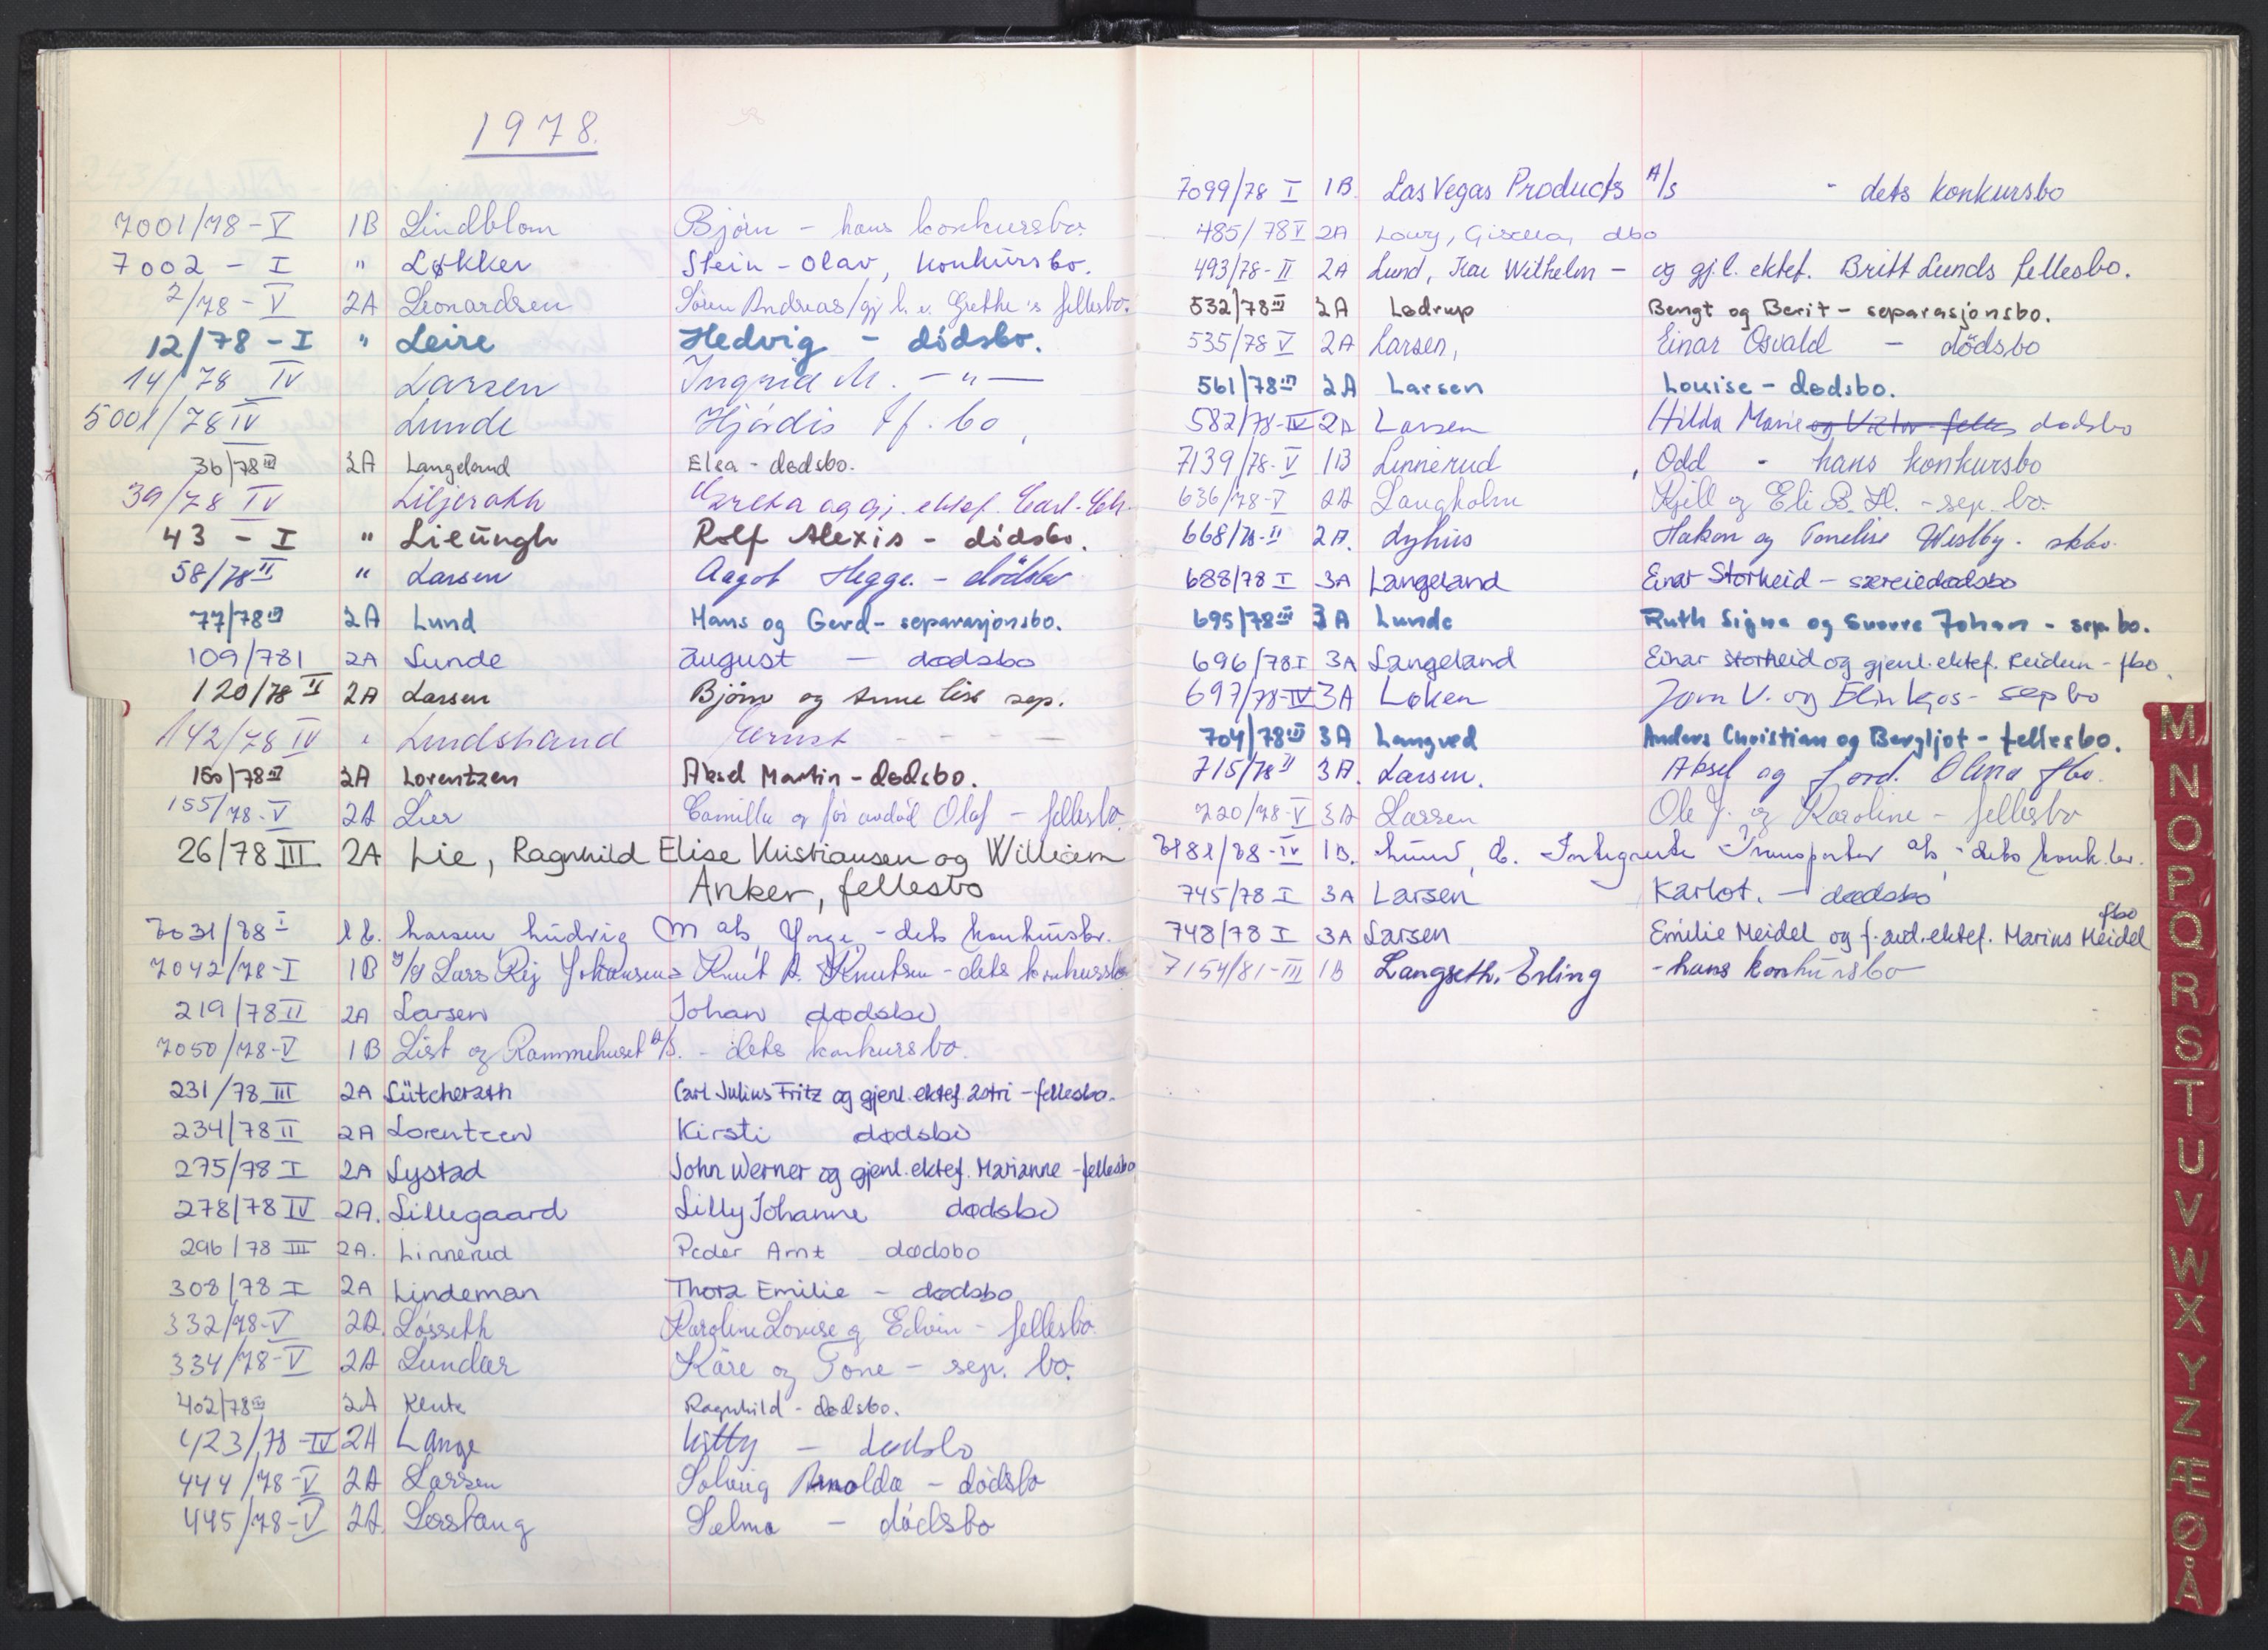 1978.
7001/78-V 1B Lindblom Bjørn - hans konkursbo.
7002 - I " Løkker Stein-Olav, konkursbo.
2/78-V 2A Leonardsen Søren Andreas/gj l. e. Grethe's fellesbo.
12/78 - I " Leire Hedvig - dødsbo.
14/78 IV Larsen Ingrid M. - " -
5001/78 IV Lunde Hjördis bo
36/78 III 2A Langeland Elsa - dødsbo.
39/78 IV og gj. ektef. Carl
43 - I " Lieungh Rolf Alexis - dødsbo.
58/78 II " Larsen Aagot Hegge. - dödsbo
77/78 III 2A Lund Hans og Gerd - separasjonsbo.
109/78 I 2A Lunde august - dødsbo
120/78 II 2A Larsen Bjørn og Anne Lise sep.
142/78 IV " Lundstrand Ernst - - - -
150/78 III 2A Lorentzen Aksel Martin - dødsbo.
155/78-V 2A Lier Camilla og før avdød Olaf - fellesbo.
26/78 III 2A Lie, Ragnhild Elise Kristiansen og William
Anker, fellesbo
7031/78 I 1B. Larsen, Ludvig M - dets konkursbo.
7042/78-I 1B Lars Johansens Knut A. Knutsen - dets konkursbo
219/78 II 2A Larsen Johan dødsbo
7050/78-V 1B List og Rammehuset A/S. - dets konkursbo.
231/78 III 2A Lütcherath Carl Julius Fritz og gjenl. ektef. Astri - fellesbo.
234/78 II 2A Lorentzen Kirsti dødsbo
275/78 I 2A Lystad John Werner og gjenl. ektef. Marianne - fellesbo
278/78 IV 2A. Lillegaard Lilly Johanne dødsbo
296/78 III 2A. Linnerud Peder Arnt dødsbo
308/78 I 2A Lindeman Thora Emilie - dødsbo
332/78-V 2A. Løsseth Karoline Lovise og Edvin - fellesbo
334/78-V 2A Lundar Kåre og Tone - sep. bo.
402/78 III 2A Ragnhild - dødsbo.
423/78-IV 2A Lange Kitty - dødsbo
444/78-V 2A Larsen Solveig Arnolda - dødsbo
445/78-V 2A. Selma - dødsbo
7099/78 I 1B. Las Vegas Products A/s - dets konkursbo
485/78 V 2A Lowy, Gisella, dbo
493/78-II 2A Lund, Kai Wilhelm - og gj.l. ektef. Britt Lunds fellesbo.
532/78 III 2A Lødrup Bengt og Berit - separasjonsbo.
535/78 V 2A Larsen, Einar Osvald - dödsbo
561/78 III 2A Larsen Louise - dødsbo.
582/78-IV 2A Larsen Hilda Marie og Victor felles dødsbo
7139/78-V 1B Linnerud, Odd - hans konkursbo
636/78-V 2A Langholm Kjell og Eli B. H. - sep. bo.
668/78-II 2A. Lyhus Håkon og Tonelise Westby. skbo.
688/78 I 3A Langeland Einar Storheid - særeiedødsbo
695/78 III 3A Lunde Ruth Signe og Sverre Johan - sep. bo.
696/78 I 3A Langeland Einar Storheid og gjenl. ektef. Reidun - fbo
697/78-IV 3A Løken Jørn V. og - sepbo
704/78 III 3A Langved Anders Christian og Bergljot - fellesbo.
715/78 II 3A. Larsen. Aksel og ford. Olena fbo.
720/78-V 3A Larsen Ole J. og Karoline - fellesbo
7181/78-IV 1B. Lund, A. Integrerte Transporter - dets konk.bo.
745/78 I 3A Larsen Karlot. - dødsbo
748/78 I 3A Larsen Emilie Meidel og f. avd. ektef. Marius Meidel fbo
7154/81-III 1B Langseth, Erling - hans konkursbo
M
N
O
P
Q
R
S
T
U
V
W
X
Y
Z
Æ
Ø
Å